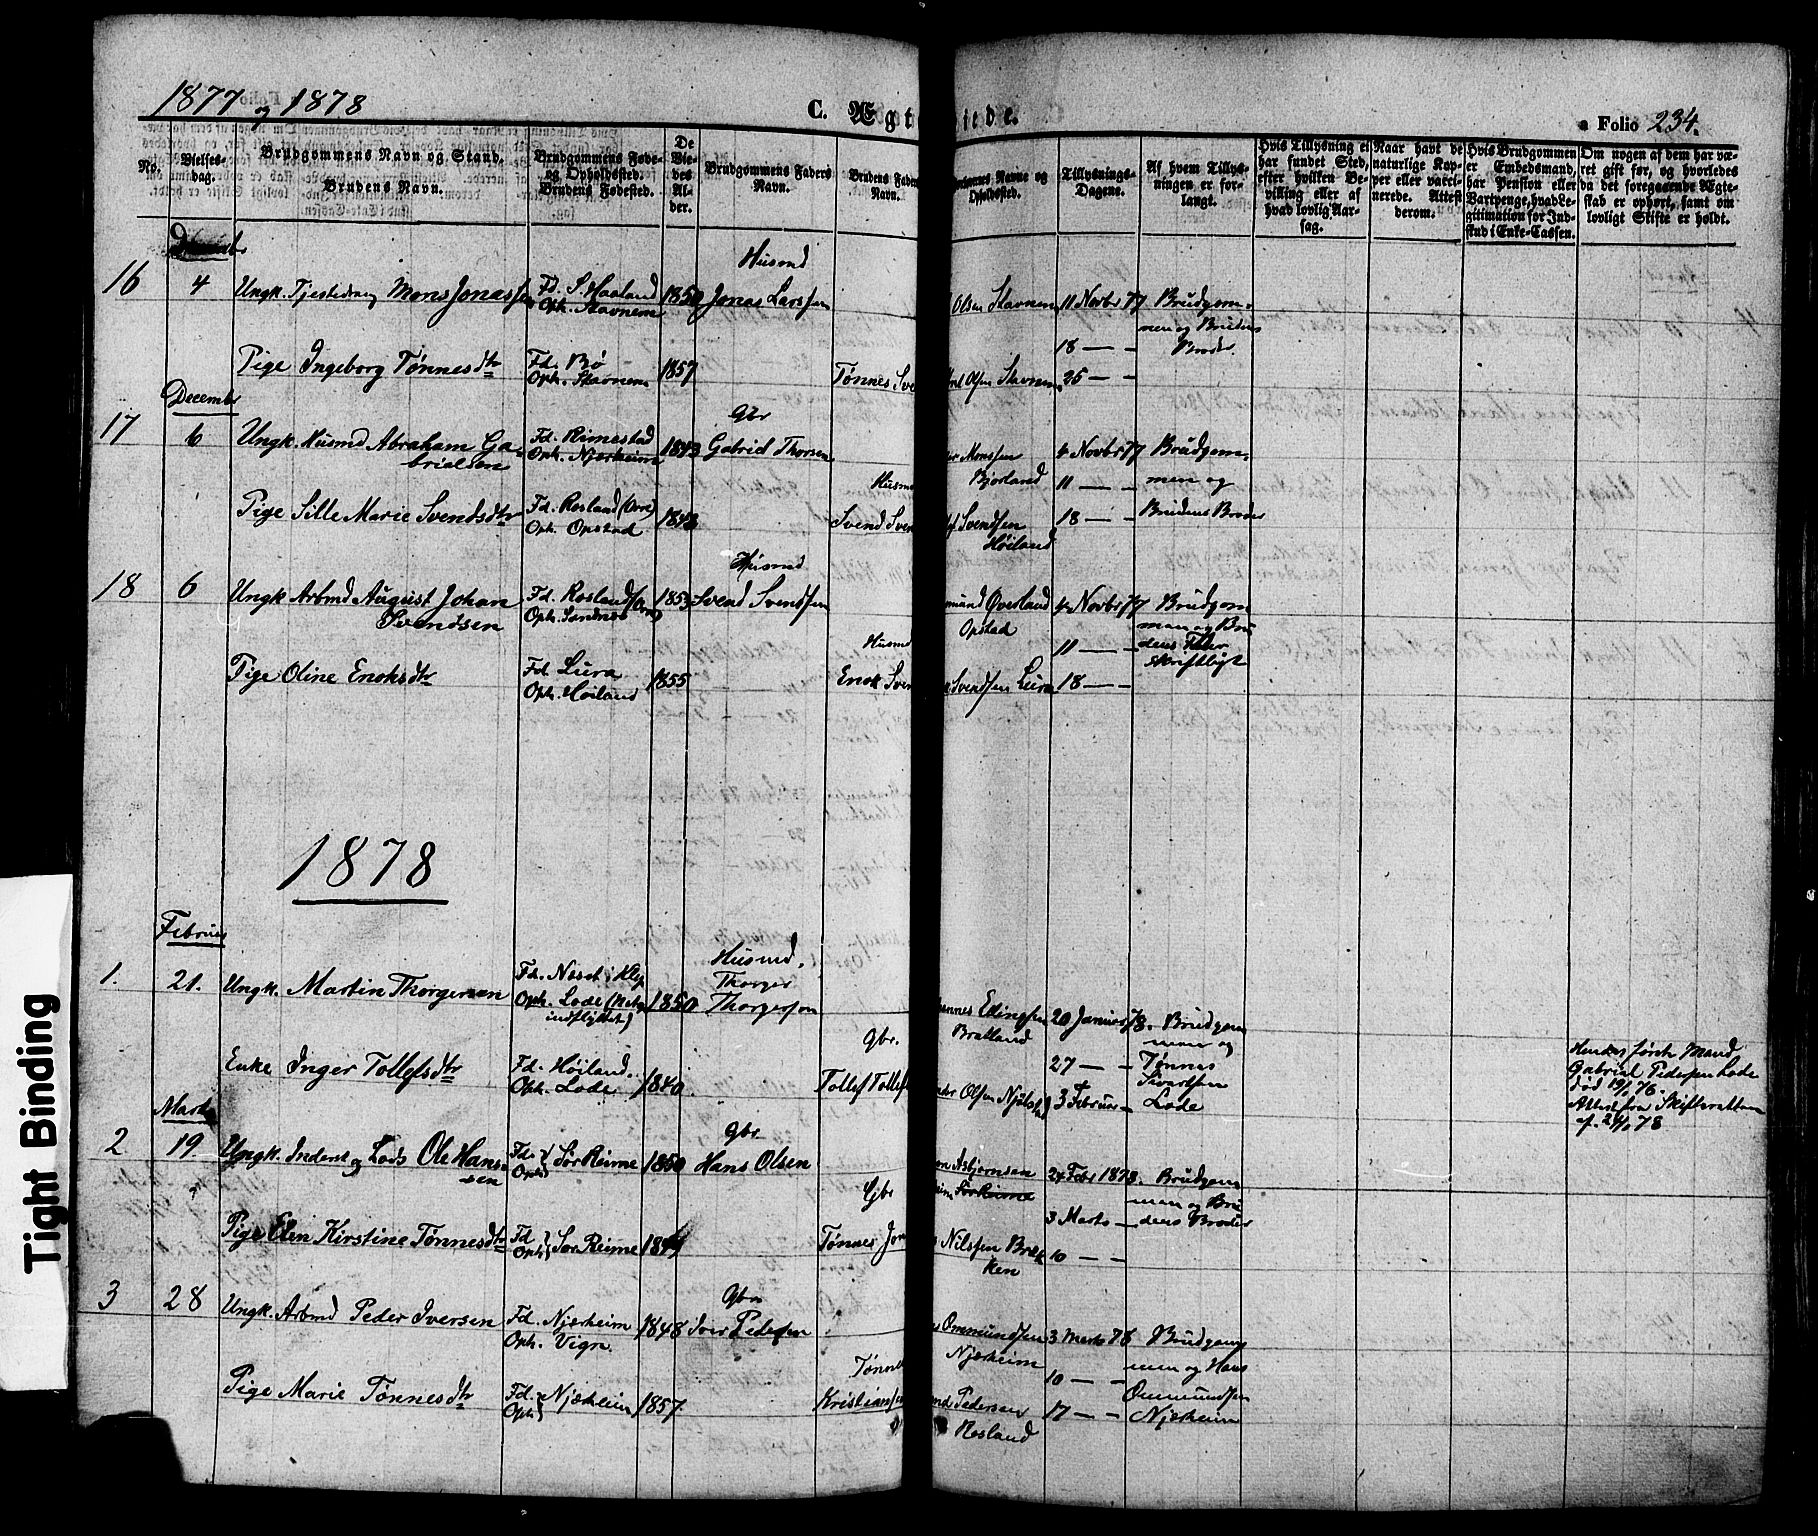 1877 og 1878
C. Ægt iede.
a Folio 234.
No.
Vielses-
dag.
Brudgommens Navn og Stand.
Brudens Navn.
Brudgommens Føde-
og Opholdssted.
Brudens Fødested.
De
Vie-
des
Al-
der.
Brudgommens Faders
Navn.
Brudens Faders
Navn.
Tillysnings-
Dagene.
Af hvem Tillys-
ningen er for-
langt.
Hvis Tillysning ei
har fundet Sted,
efter hvilken Be-
villing eller af
hvad lovlig Aar-
sag.
Naar havt de
naturlige Kop-
per eller vacci-
nerede. Attest
derom.
Hvis Brudgommen
er Embedsmand,
har Pension eller
Vartpenge, hvad Le-
gitimation for Ind-
skud i Enke-Cassen.
Om nogen af dem har væ-
ret gift før, og hvorledes
da det foregaaende Ægte-
skab er ophørt, samt om
lovligt Skifte er holdt.
16
4
Ungk. Tjestedreng Mons Jonassen
Fd. S. Haaland
Oph. Stavnem
1850
Husmd
Jonas Larssen
Olsen Stavnem
11 Novbr 77
Brudgom-
men og Brudens
Broder.
18 — —
Pige Ingeborg Tønnesdtr
Fd. Bø
Oph. Stavnem
1857
Tønnes Sve
Olsen Stavnem
25 — —
December
17
6
Ungk. Husmd Abraham Ga-
brielsen
Fd. Rimestad
Oph. Njærheim
1843
Gbr
Gabriel Thorsen
Monssen
Bjorland
4 Novbr 77
Brudgom-
men og
Brudens Broder
11 — —
Pige Sille Marie Svendsdtr
Fd. Rosland (Orre)
Oph. Opstad
1848
Husm
Svend Sven
Svendsen
Høiland
18 — —
18
6
Ungk Arbmd August Johan
Svendsen
Fd. Rosland (Orre)
Oph. Sandnes
1853
Husmd
Svend Svendsen
mund Øverland
Opstad
4 Novbr 77
Brudgom
men og Bru
dens Fader
skriftligt
11 — —
Pige Oline Enoksdtr
Fd Lura
Oph. Høiland
1855
Husmd
Enok Sven
Svendsen Lura
18 — —
1878
Februar
1.
21.
Ungk. Martin Thorgersen
Fd. Næset i Klep
Oph. Lode (Netop
indflyttet)
1850
Husmd.
Thorger
Thorgersen
annes Edingsen
Bratland
20 Januar 78.
Brudgom
men og
Tønnes
Sivertsen
Lode
27 — —
Enke Inger Tollefsdtr
Fd. Høiland.
Oph. Lode.
1840.
Gbr.
Tollef Tollefs
der Olsen Njølst
3 Februar —
Hendes første Mand
Gabriel Pedersen Lode
død 19/1 76.
Attest fra Skifteretten
Marts
2
19
Ungk. Inderst og Lods Ole Han-
sen
Fd. Oph. Sør Reime
1850
Gbr.
Hans Olsen
on Asbjørnsen
im Sør Reime
24 Febr 1878.
Brudgom
men og Bru
dens Broder
3 Marts —
Pige Elen Kirstine Tønnesdtr
Fd Oph Sør Reime
1849
Gbr
Tønnes Jon
Nilssen Bræk
ken
10 — —
3
28
Ungk. Arbmd Peder Iversen
Fd. Njærheim
Oph. Vigre.
1848
Gbr
Iver Pedersen
Ommundsen
Njærheim
3 Marts 78
Brudgom
men og Hans
Ommundsen
Njærheim
10 — —
Pige Marie Tønnesdtr
Fd. Oph Njærheim
1857
Tønnes
Kristiansen
Pedersen
Rosland
17 — —
Tight Binding